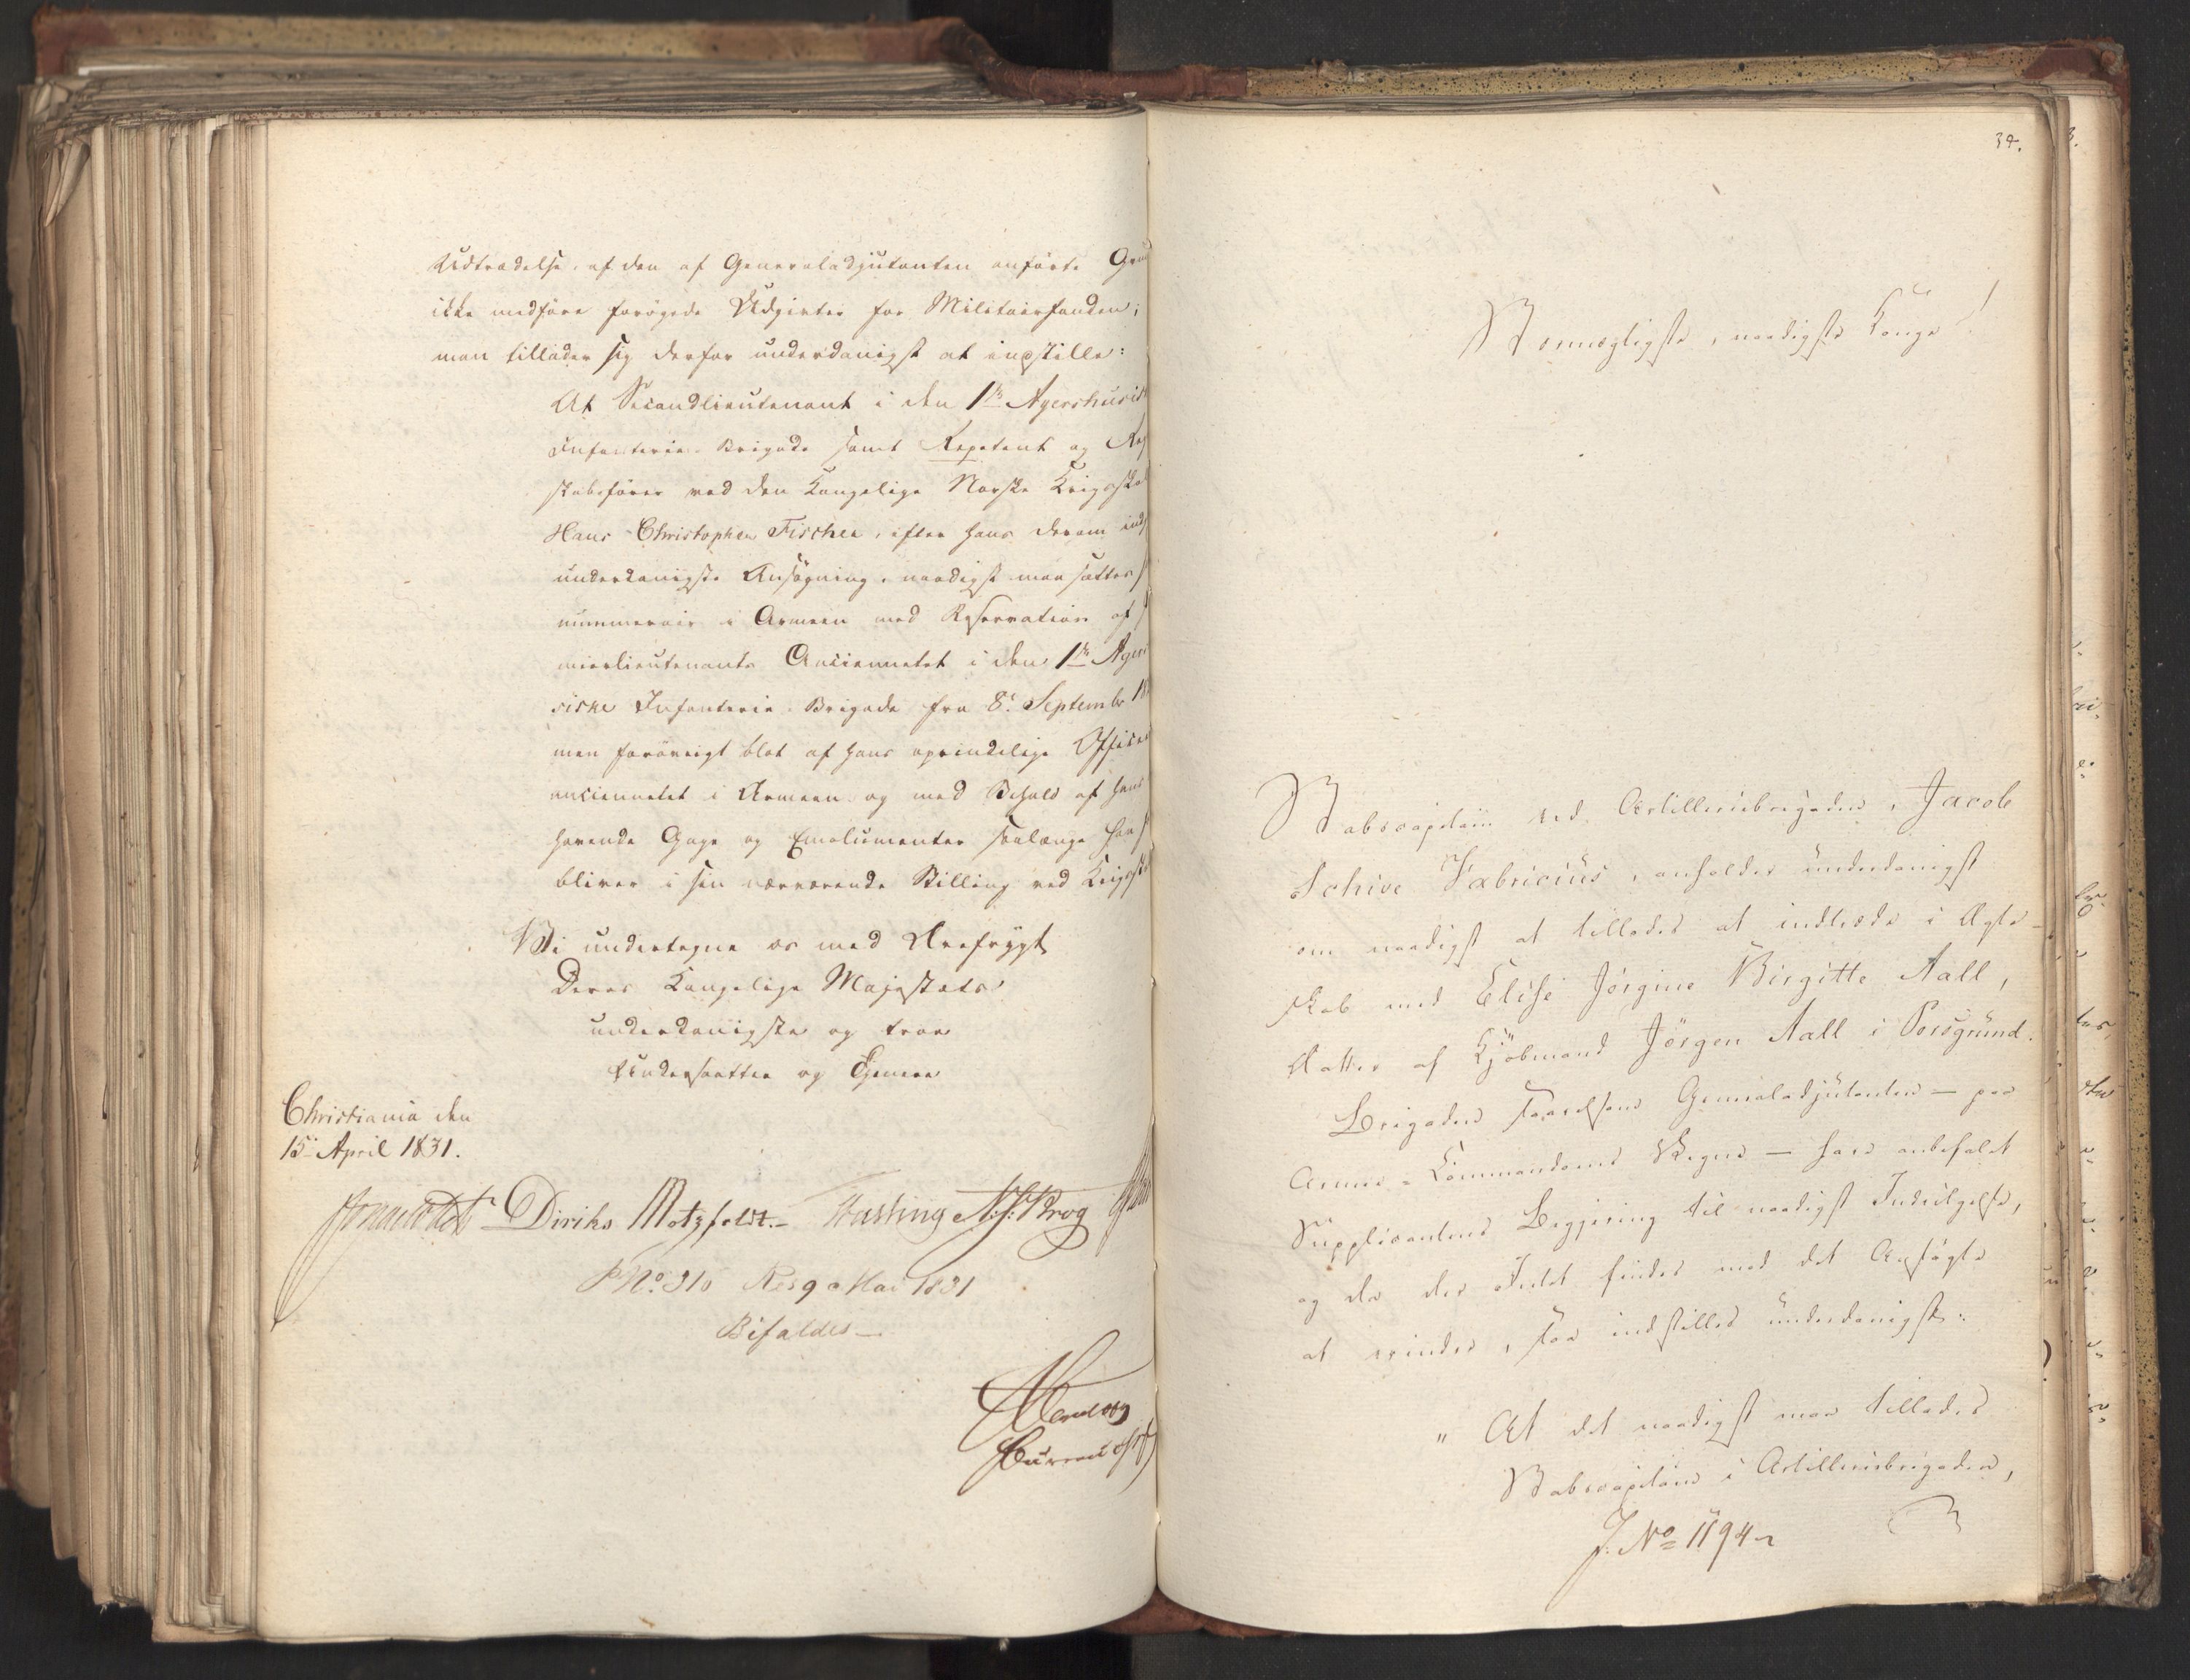 Udtrædelse, af den af Generaladjutanten anførte Gru
ikke medføre forøgede Udgivter for Militairfonden;
man tillader sig derfor underdanigst at inpstille:
At Secondlieutenant i den 1ste Agershusisk
Infanterie-Brigade samt Repetent og Reg
skabsfører ved den Kongelige Norske Krigsskol
Hans Christopher Fischer, efter hans derom ind
underdanigste Ansøgning, naadigst maa sættes
nummerair i Armeen med Reservation af
mierlieutenants Anciennetet i den 1ste Agers
siske Infanterie-Brigade fra 8de September 18
men forövrigt blot af hans oprindelige Officer
anciennetet i Armeen og med Behold af hans
havende Gage og Emolumenter saalænge han
bliver i sin nærværende Stilling ved Krigssk
Vi undertegne os med Ærefrygt
Deres Kongelige Majestæts
underdanigste og troe
Undersaatter og Tjenere
Christiania den
15de April 1831.
Diriks Motzfeldt. Fasting N.J. Krog
P No. 310 Res 9 Mai 1831
Bifaldes
34.
Stormægtigste, naadigste Konge!
Stabscapitain ved Artilleriebrigaden, Jacob
Schive Fabricius, anholder underdanigst
om naadigst at tillades at indtræde i Ægte-
skab med Elise Jørgine Birgitte Aall,
Datter af Kjöbmand Jörgen Aall i Porsgrund.
Brigaden saavelsom Generaladjutanten — paa
Armee-Commandoens Vegne — have anbefalet
Supplicantens Begjering til naadigst Indvilgelse,
og da der Intet findes mod det Ansøgte
at erindre, saa indstilles underdanigst:
" At det naadigst maa tillades
Stabscapitain i Artilleriebrigaden,
J. No 1194